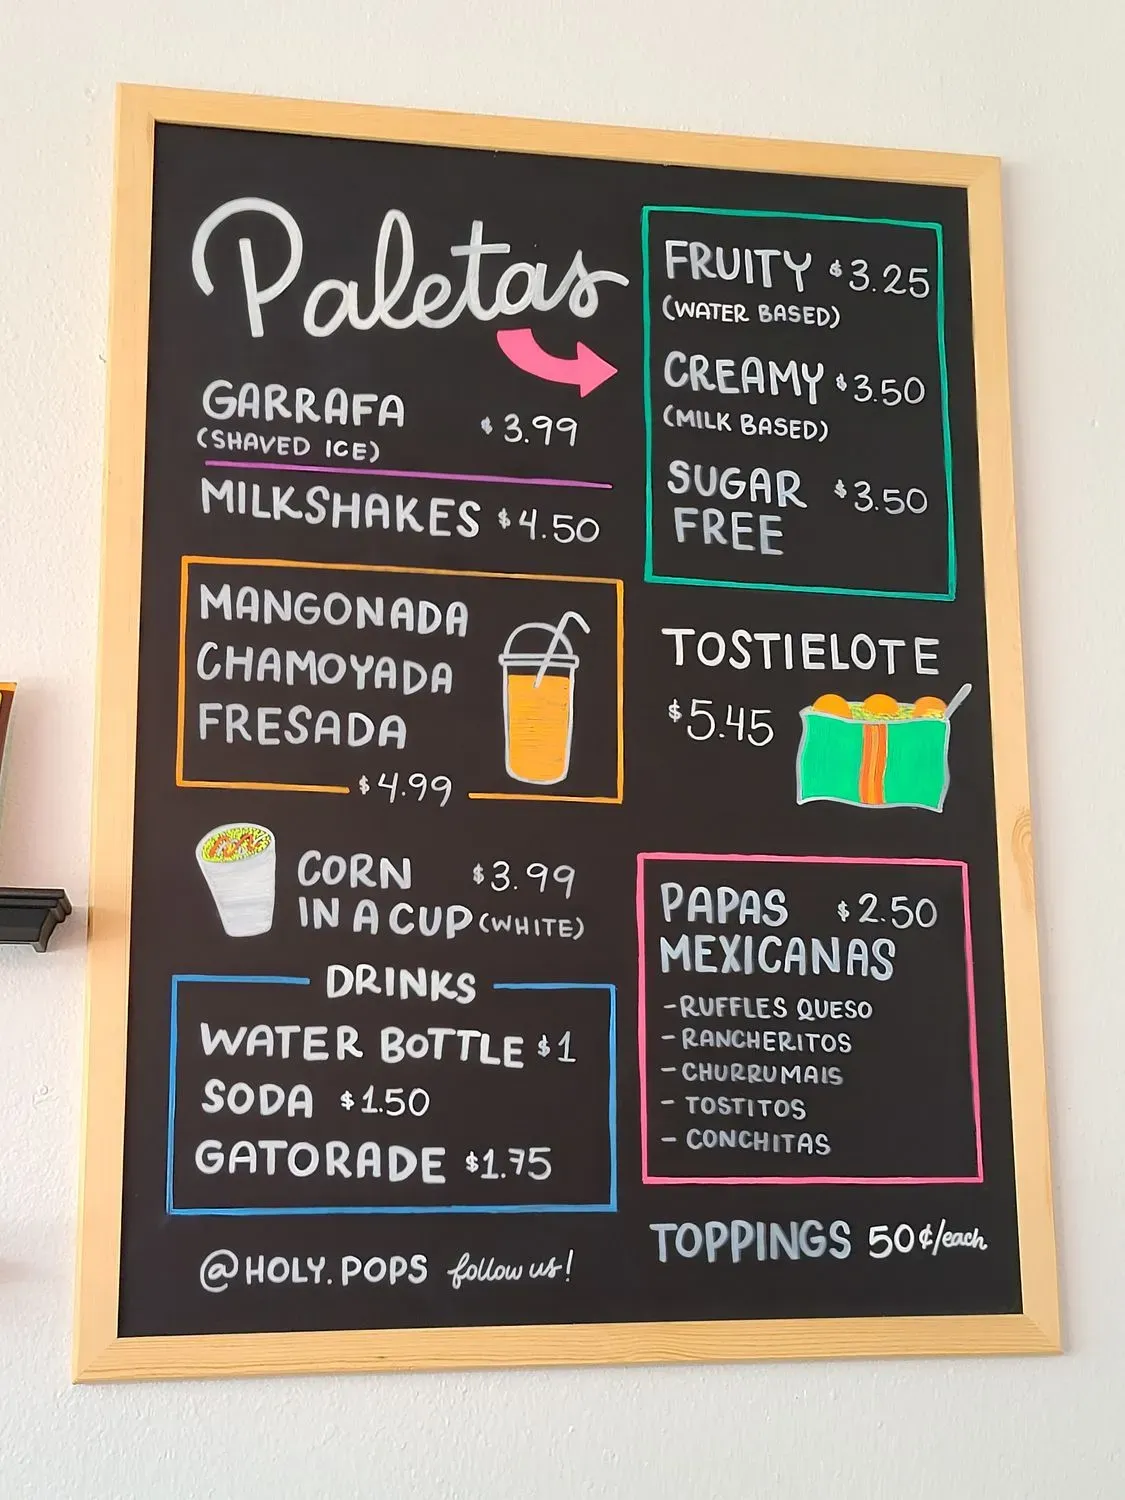 Paletas
FRUITY $3.25
(WATER BASED)
CREAMY $3.50
(MILK BASED)
SUGAR $3.50
FREE
GARRAFA $3.99
(SHAVED ICE)
MILKSHAKES $4.50
MANGONADA
CHAMOYADA
FRESADA
$4.99
TOSTIELOTE
$5.45
CORN $3.99
IN A CUP (WHITE)
PAPAS $2.50
MEXICANAS
-RUFFLES QUESO
-RANCHERITOS
-CHURRUMAIS
- TOSTITOS
- CONCHITAS
DRINKS
WATER BOTTLE $1
SODA $1.50
GATORADE $1.75
TOPPINGS 50¢/each
@HOLY.POPS follow us!